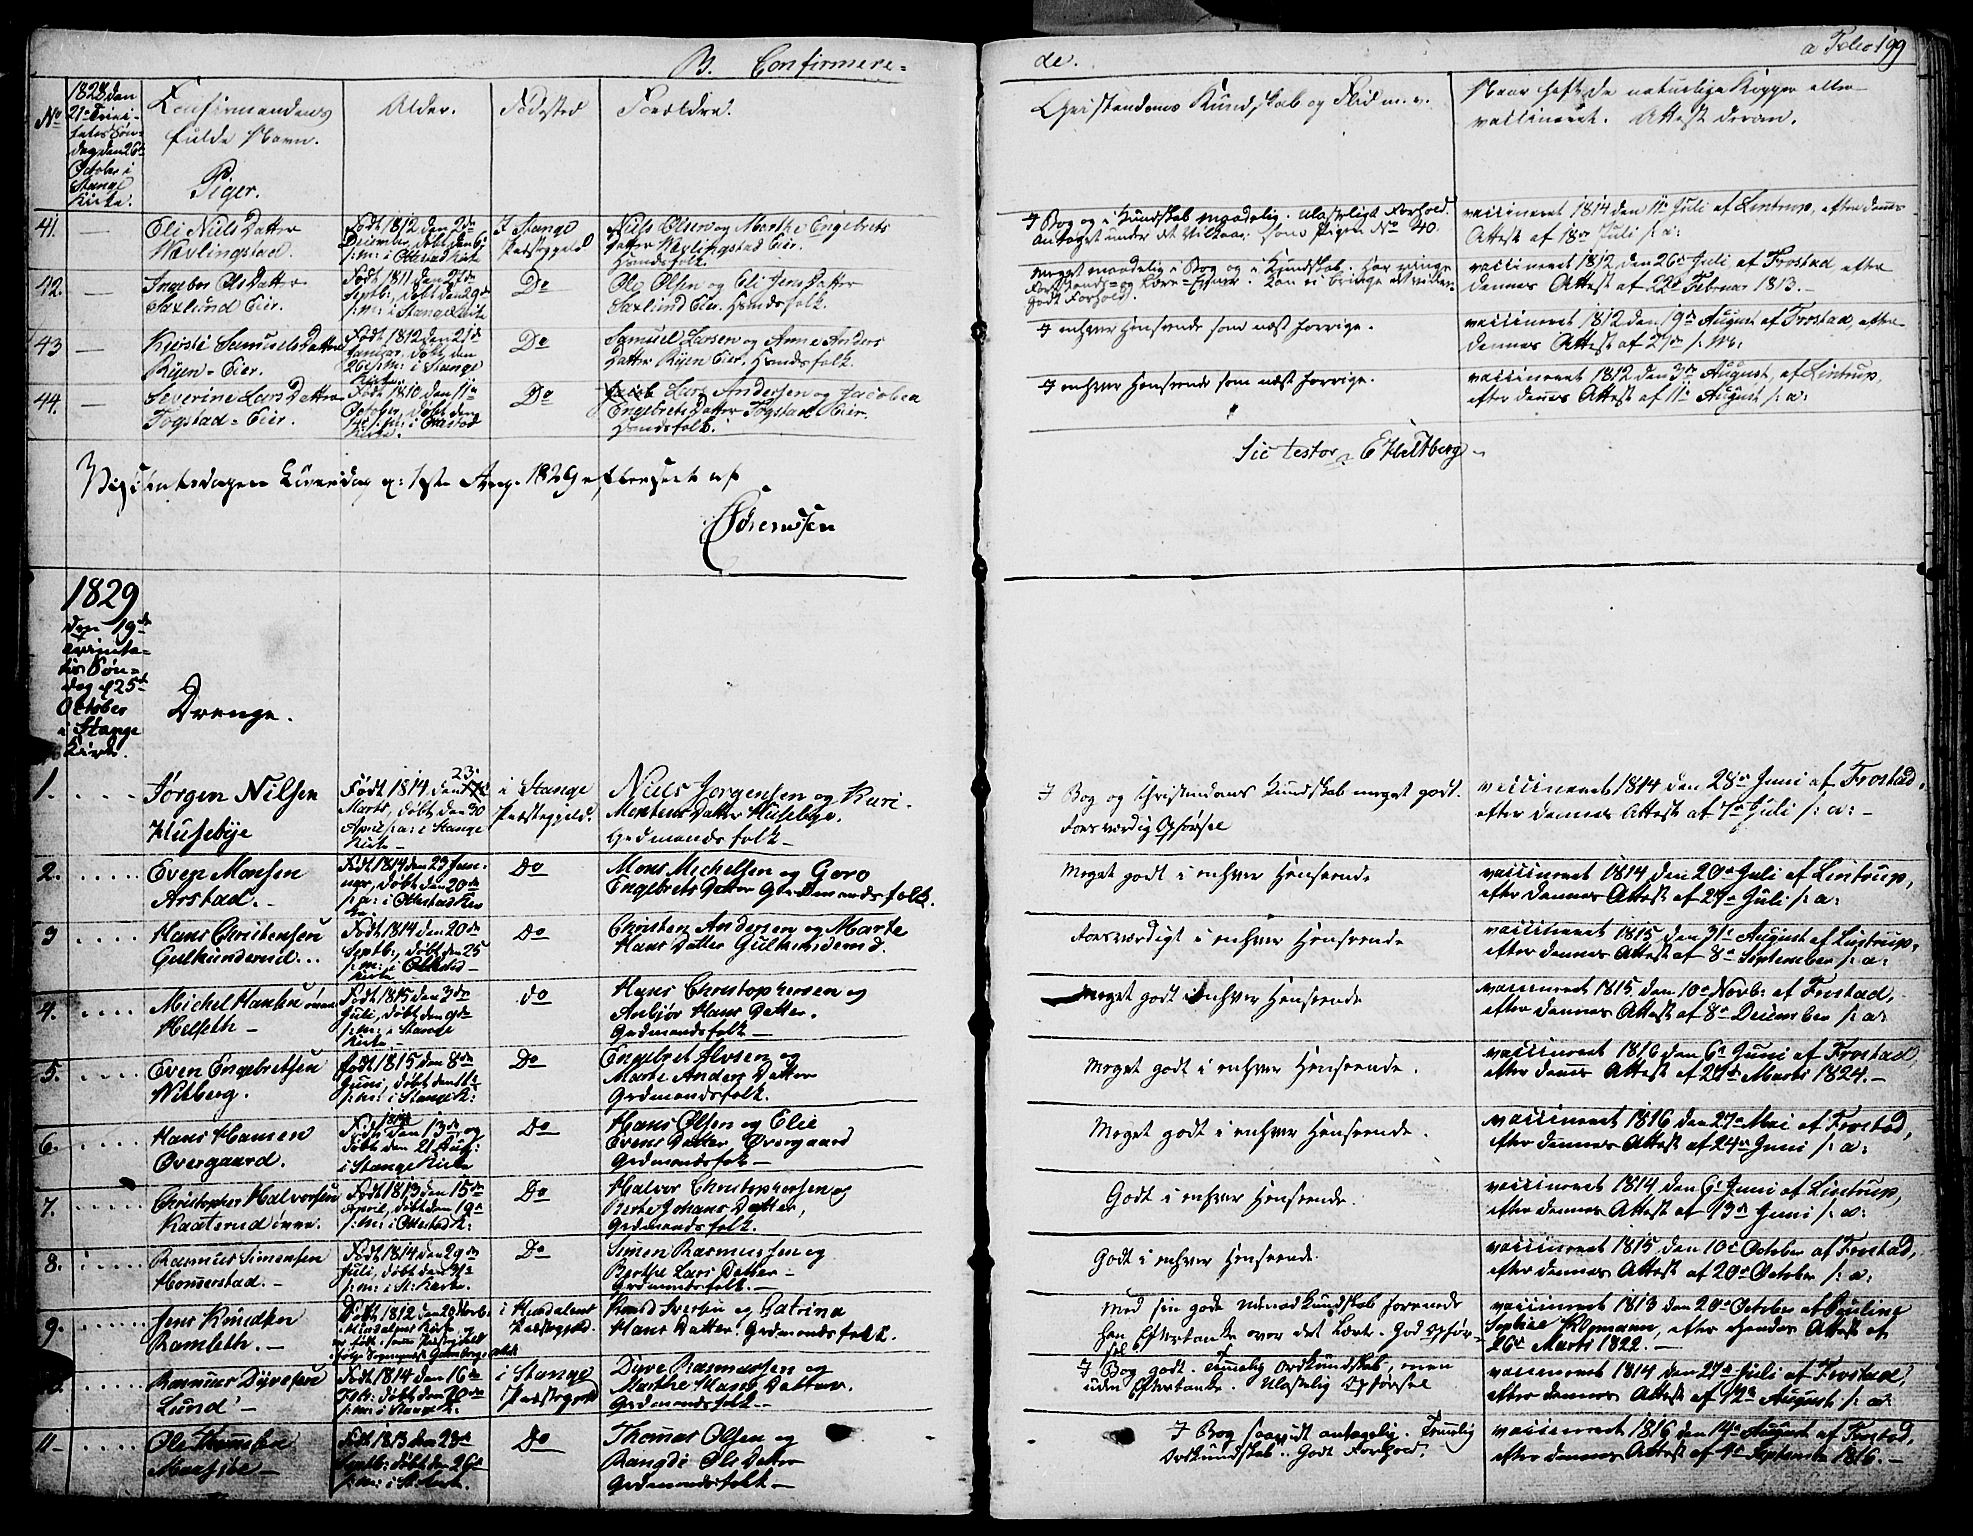 B. Confirmere=
de.
a Folio 199
No
1828 den
21de Trini-
tatis Søn-
dag den 26de
October i
Stange
Kirke.
Confirmandens
fulde Navn.
Piger.
Alder.
Fødested
Forældre.
Christendoms Kundskab og Flid m. v.
Naar havt de naturlige Kopper eller
vaccineret. Attest derom.
41.
Eli Nils Datter
Wævlingstad.
Født 1812 den 2den
December, døbt den 6te
s: m: i Ottestad Kirke
I Stange
Præstegjeld
Nils Olsen og Marthe Engebrets
Datter Wævlingstad Eier.
Huusfolk.
I Bog og i Kundskab maadelig. Ulasteligt Forhold.
Antaget under det Vilkaar som Pigen No 40.
vaccineret 1814 den 11te Juli af Lintrup, efter dennes
Attest af 18de Juli s: a:
42.
Ingebor Ols Datter
Saxlund Eier.
Født 1811 den 21de
Septb:, døbt den 29de
s: m: i Stange Kirke
Do
Ole Olsen og Eli Jens Datter
Saxlund Eier. Huusfolk.
Meget maadelig i Bog og i Kundskab. Har ringe
Forstands= og Lære=Evner. Kan ei bringe det videre.
Godt Forhold.
vaccineret 1812 den 26de Juli af Frostad efter
dennes Attest af 22de Februar 1813.-
43
Kjersti Samuels Datter
Ryen=Eier.
Født 1812 den 21de
Januar, døbt den
26 s: m: i Stange
Kirke.
Do
Samuel Larsen og Anne Anders
Datter Ryen Eier. Huusfolk.
I enhver Henseende som næst forrige.
vaccineret 1812 den 19de August af Frostad, efter
dennes Attest af 27de s: M:
44.
Severine Lars Datter
Fogstad=Eier.
Født 1810 den 11te
October, døbt den
14de s: m: i Ottestad
Kirke.
Do
Lars Andersen og Jacobea
Engebrets Datter Fogstad Eier.
Huusfolk.
I enhver Henseende som næst forrige.
vaccineret 1812 den 3die August, af Lintrup,
efter dennes Attest af 11te August s: a:
Sic testor E Heltberg
Visitatsdagen Løverdag d: 1ste Aug. 1829 efterseet af
Sørenssen
1829
den 19de
Trinita-
tis Søn=
dag d 25de
October
i Stange
Kirke.
Drenge.
1.
Jørgen Nilsen
Husebye
Født 1814 den 23.
Marts, døbt den 30
April s: a: i Stange
Kirke -
i Stange
Præstegjeld.
Niels Jørgensen og Kari
Mortens Datter Husebye.
Gårdmandsfolk -
I Bog og Christendoms Kundskab meget godt.
Forsværdig Opførsel
vaccineret 1814 den 28de Juni af Frostad,
efter dennes Attest af 7de Juli s: a: -
2.
Even Monsen
Arstad.
Født 1814 den 23 Janu-
uar, døbt den 20de
s: a: i Ottestad Kir
ke
Do
Mons Michelsen og Goro
Engebrets Datter Gårdmandsfolk.
Meget godt i enhver Henseende
vaccineret 1814 den 20de Juli af Lintrup,
efter dennes Attest af 27de Juli s: a:
3
Hans Christensen
Gulhunderud...
Født 1814 den 20de
Septb:, døbt den 25
s: m: i Ottestad
Kirke
Do
Christen Andersen og Marte
Hans Datter Gulhunderud.
Forsværdigt i enhver Henseende
vaccineret 1815 den 31te August af Lintrup,
efter dennes Attest af 8de September s: a:
4.
Michel Hansen øvre
Helseth -
Født 1815 den 3die
Juli, døbt den 9de
s: m: i Stange
Kirke -
do
Hans Christophersen og
Anbjør Hans Datter.
Gårdmandsfolk -
Meget godt i enhver Henseende
vaccineret 1815, den 10de Novb: af Frostad,
efter dennes Attest af 8de December s: a:
5.
Even Engebretsen
Witberg.
født 1815 den 8de
Juni, døbt den 11te
s: m: i Stange K:
Do
Engebret Iversen og
Marte Anders Datter
Gårdmandsfolk.
Meget godt i enhver Henseende.
vaccineret 1816 den 6te Juni af Frostad,
efter dennes Attest af 27de Marts 1824. -
6.
Hans Hansen
Overgaard.
Født den 13de og
døbt den 21 Aug:
i Stange Kirke
Do
Hans Olsen og Elie
Evens Datter Overgaard
Gårdmandsfolk -
Meget godt i enhver Henseende.
vaccineret 1816 den 27de Mai af Frostad,
efter dennes Attest af 24de Juni s: a:
7.
Christopher Halvorsen
Kaaterud øvre.
Født 1813 den 15de
April, døbt den 19de
s: m: i Ottestad K:
Do
Halvor Christophersen og
Berthe Johans Datter,
Gårdmandsfolk.
Godt i enhver Henseende.
vaccineret 1814, den 6te Juni af Lintrup,
efter dennes Attest af 13de Juni s: a:
8.
Rasmus Simensen
Homerstad. -
Født 1814 den 29de
Juli, døbt den 31te
s: m: i St: Kirke.
Do
Simen Rasmussen og
Berthe Lars Datter -
Gårdmandsfolk. -
Godt i enhver Henseende.
vaccineret 1815 den 10de October af Frostad,
efter dennes Attest af 20de October s: a:
9.
Jens Knudsen
Ramseth. -
Født 1812 den 20 Novb:
i Præstegjeld.
Knud Iversen og Catrina
Hans Datter. Gårdmandsfolk.
Med sin gode Udenadkundskab forenede
han Eftertanke over det Lærte. God Opfør-
sel
vaccineret 1813 den 20de October af Pauline
Sophie Kopmann, efter hendes Attest af
26de Marts 1822. -
10.
Rasmus Dyresen
Lund -
Født 1814 den 16de
Feb: døbt den 20de
s: m: i Stange K:
i Stange
Præstegjeld
Dyre Rasmussen og
Marthe Hans Datter.
Gårdmandsfolk -
I Bog godt. Temelig Ordkundskab, men
uden Eftertanke. Ulastelig Opførsel
vaccineret 1814 den 27de Juli af Frostad,
efter dennes Attest af 12te August s: a:
11
Ole Thomsen
Født 1813 den 23de
Septb: døbt den 26de
s: m: i St: Kirke.
Do
Thomas Olsen og
Rangdi Ols Datter
Gårdmandsfolk -
I Bog saavidt antagelig. Temelig
Ordkundskab. Godt Forhold.
vaccineret 1816 den 14de August af Frostad,
efter dennes Attest af 4de September 1816. -